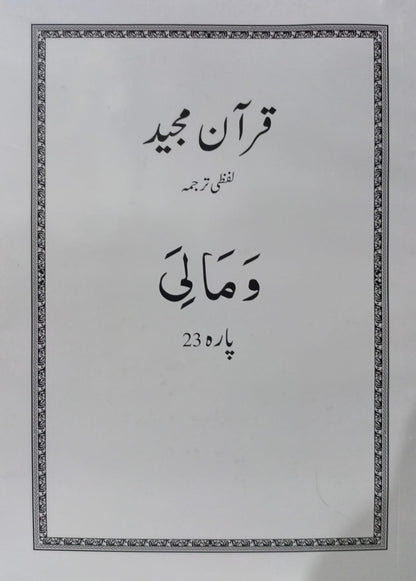 قرآن مجید
لفظی ترجمہ
وَمَالِیَ
پارہ 23